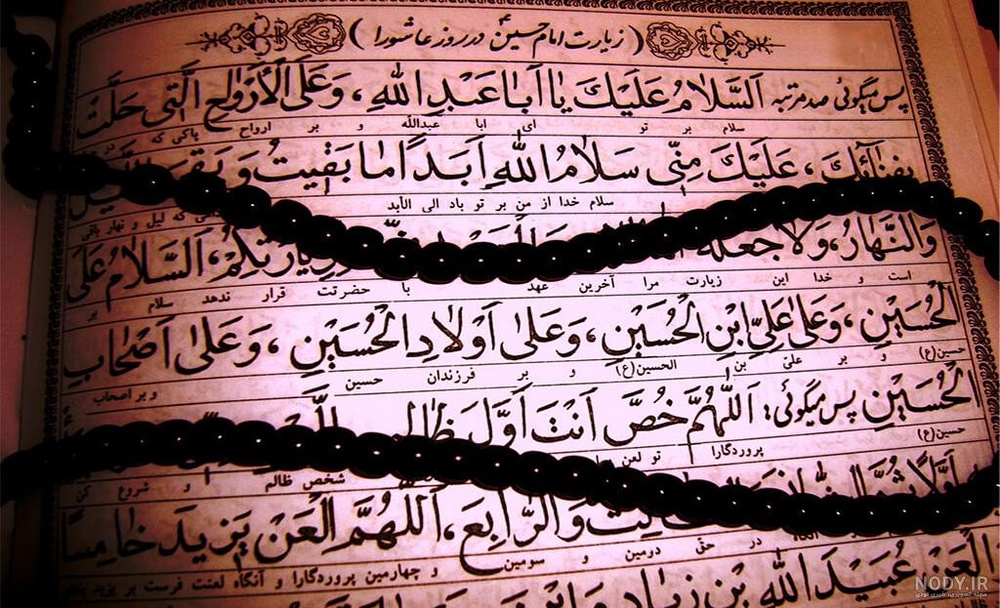 (زیارت امام حسین ع در روز عاشورا)
پس میگوئی صد مرتبه اَلسَّلامُ عَلَیْکَ یا اَبا عَبْدِاللهِ، وَعَلَی الْاَرْواحِ الَّتی حَلَّتْ
سلام بر تو ای ابا عبدالله و بر ارواح پاکی که در
بِفِنائِکَ، عَلَیْکَ مِنّی سَلامُ اللهِ اَبَداً ما بَقیتُ وَ بَقِیَ
سلام خدا از من بر تو باد الی الأبد که لیل و نهار باقی
وَالنَّهارُ، وَلا جَعَلَهُ لِزِیارَتِکُمْ، اَلسَّلامُ عَلَی
است و خدا این زیارت مرا آخرین عهد با حضرتت قرار ندهد سلام بر
الْحُسَیْنِ، وَعَلی عَلِیِّ ابْنِ الْحُسَیْنِ، وَعَلی اَوْلادِ الْحُسَیْنِ، وَعَلی اَصْحابِ
حسین(ع) و بر علی بن الحسین(ع) و بر فرزندان حسین و بر اصحاب
الْحُسَیْنِ پس میگوئی: اَللّهُمَّ خُصَّ اَنْتَ اَوَّلَ ظالِمٍ
حسین(ع) پروردگارا تو لعن شخص ظالم و شروع کن
اَوَّلاً ثُمَّ وَالرّابِعَ، اَللّهُمَّ الْعَنْ یَزیدَ خامِساً
در حق دومین و سومین و چهارمین پروردگارا و آنگاه لعنت فرست بر یزید پنجم
الْعَنْ عُبَیْدَاللهِ بْنَ زِیادٍ وَابْنَ
NODY.IR